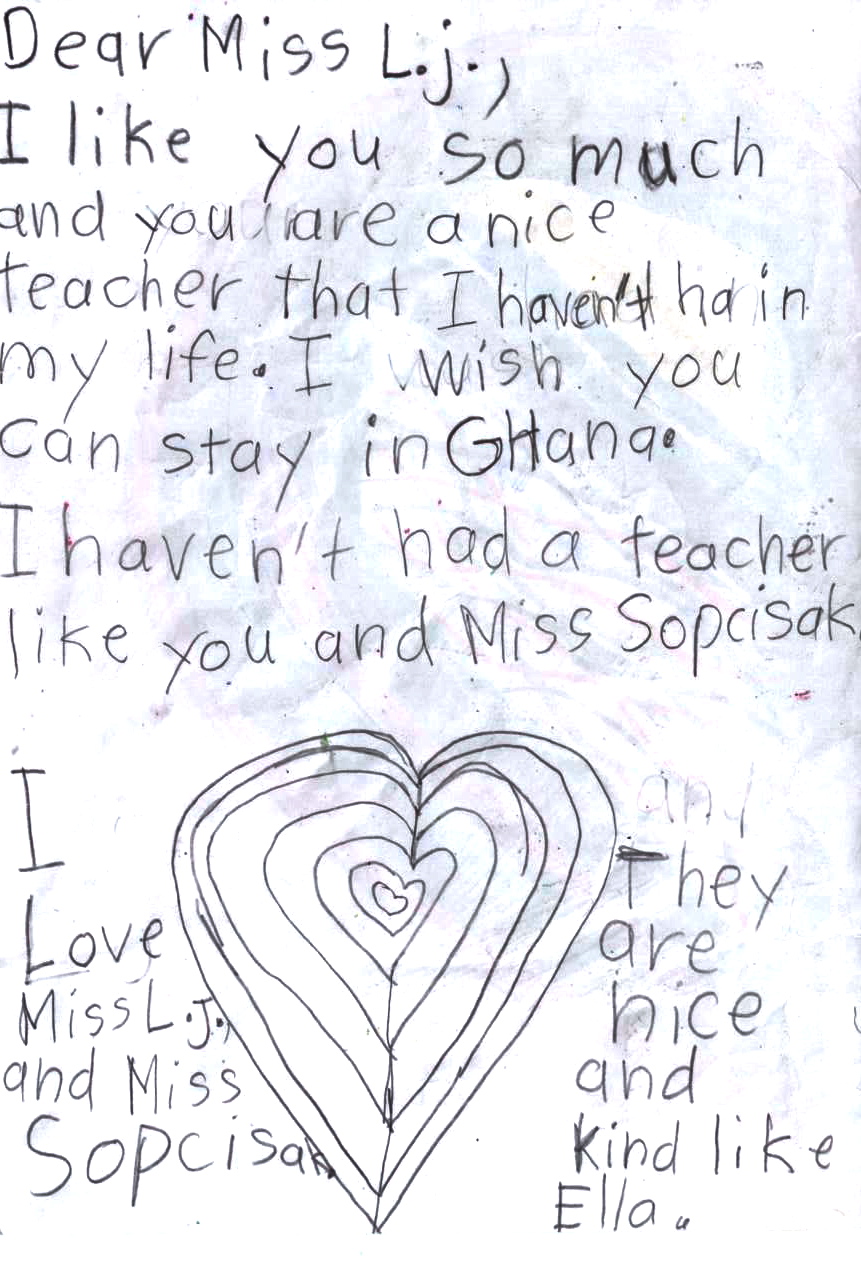 Dear Miss L.j.,
I like you so much
and you are a nice
teacher that I haven't ha in
my life. I wish you
can stay in GHana.
I haven't had a teacher
like you and Miss Sopcisak
I
Love
Miss L.J.,
and Miss
Sopcisak
any
They
are
nice
and
kind like
Ella.